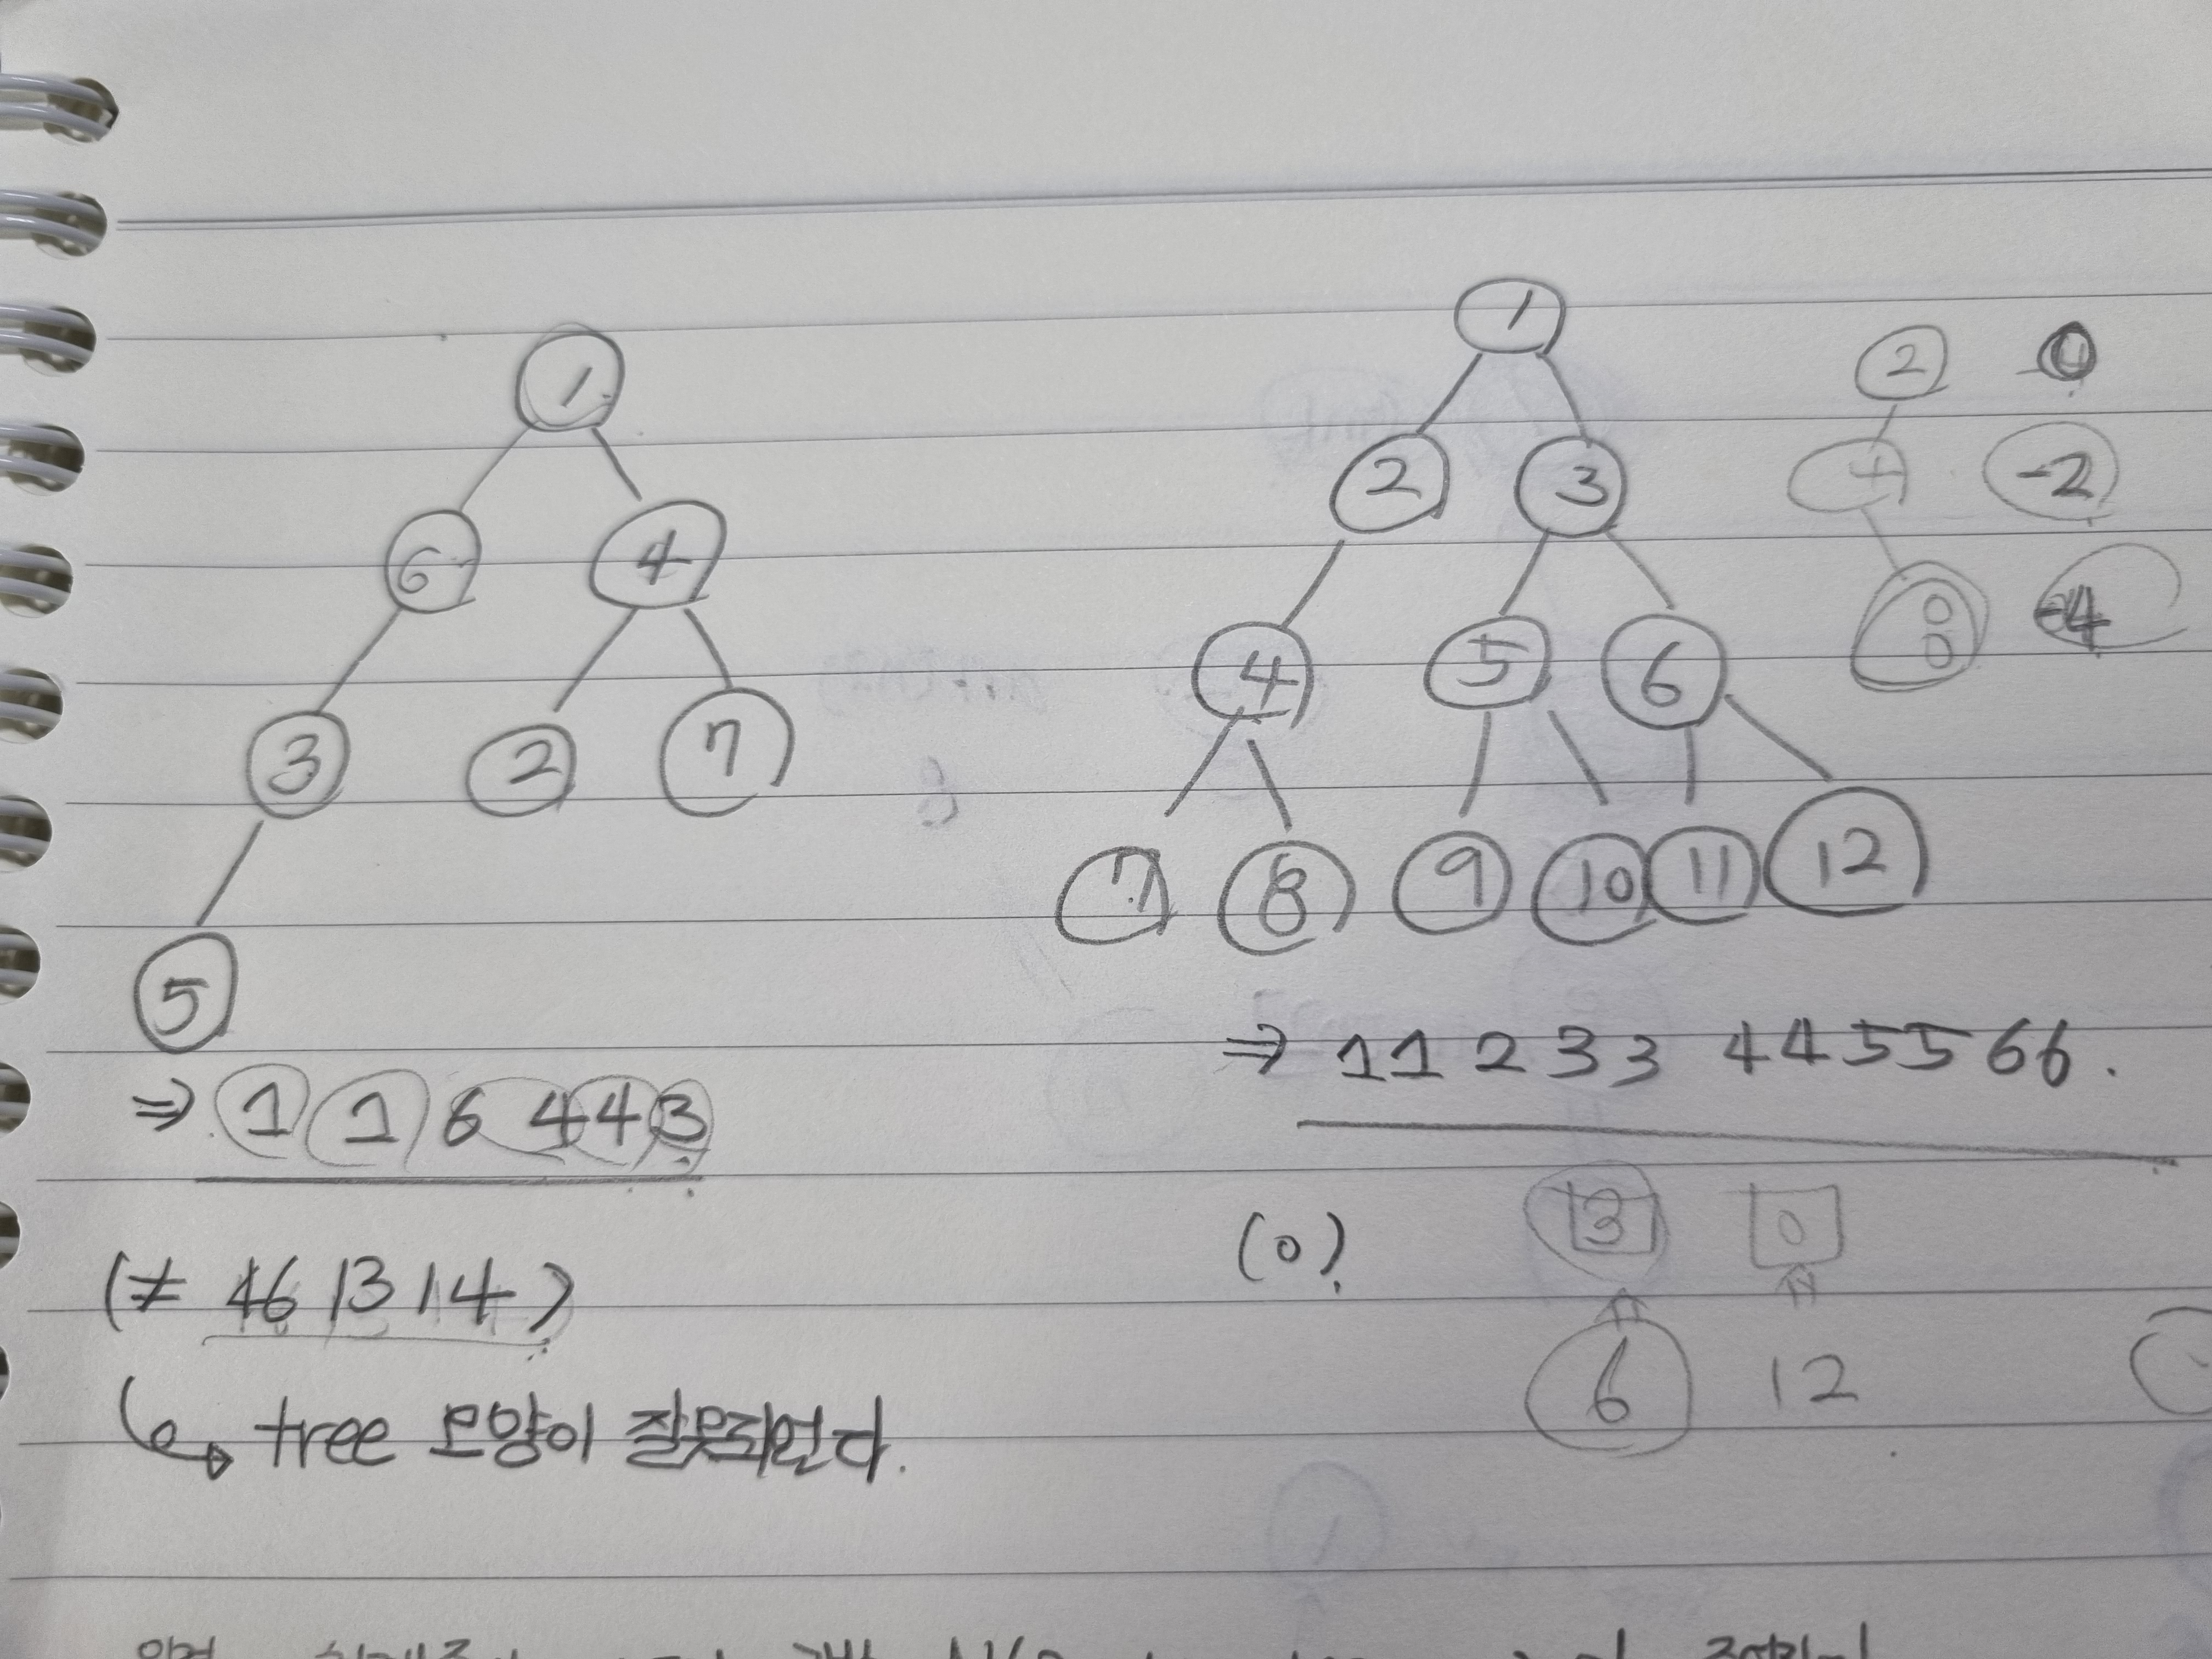 1
6 4
3 2 7
5
⇒ 1 1 6 4 4 3
(≠ 46 13 14)
↳ tree 모양이 잘못되었다.
1
2 3
4 5 6
7 8 9 10 11 12
⇒ 11 2 33 44 55 66.
(0).
2 0
4 -2
8 -4
3 0
6 12